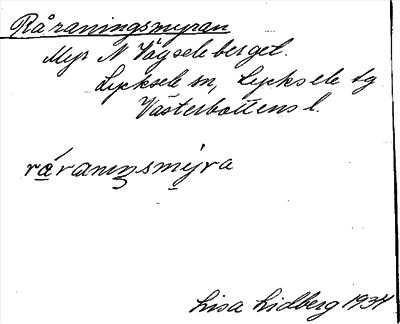 Råraningsmyran
Myr N Vägseleberget.
Lycksele sn, Lycksele tg
Västerbottens l.
ráraniŋsmýra
Lisa Lidberg 1934